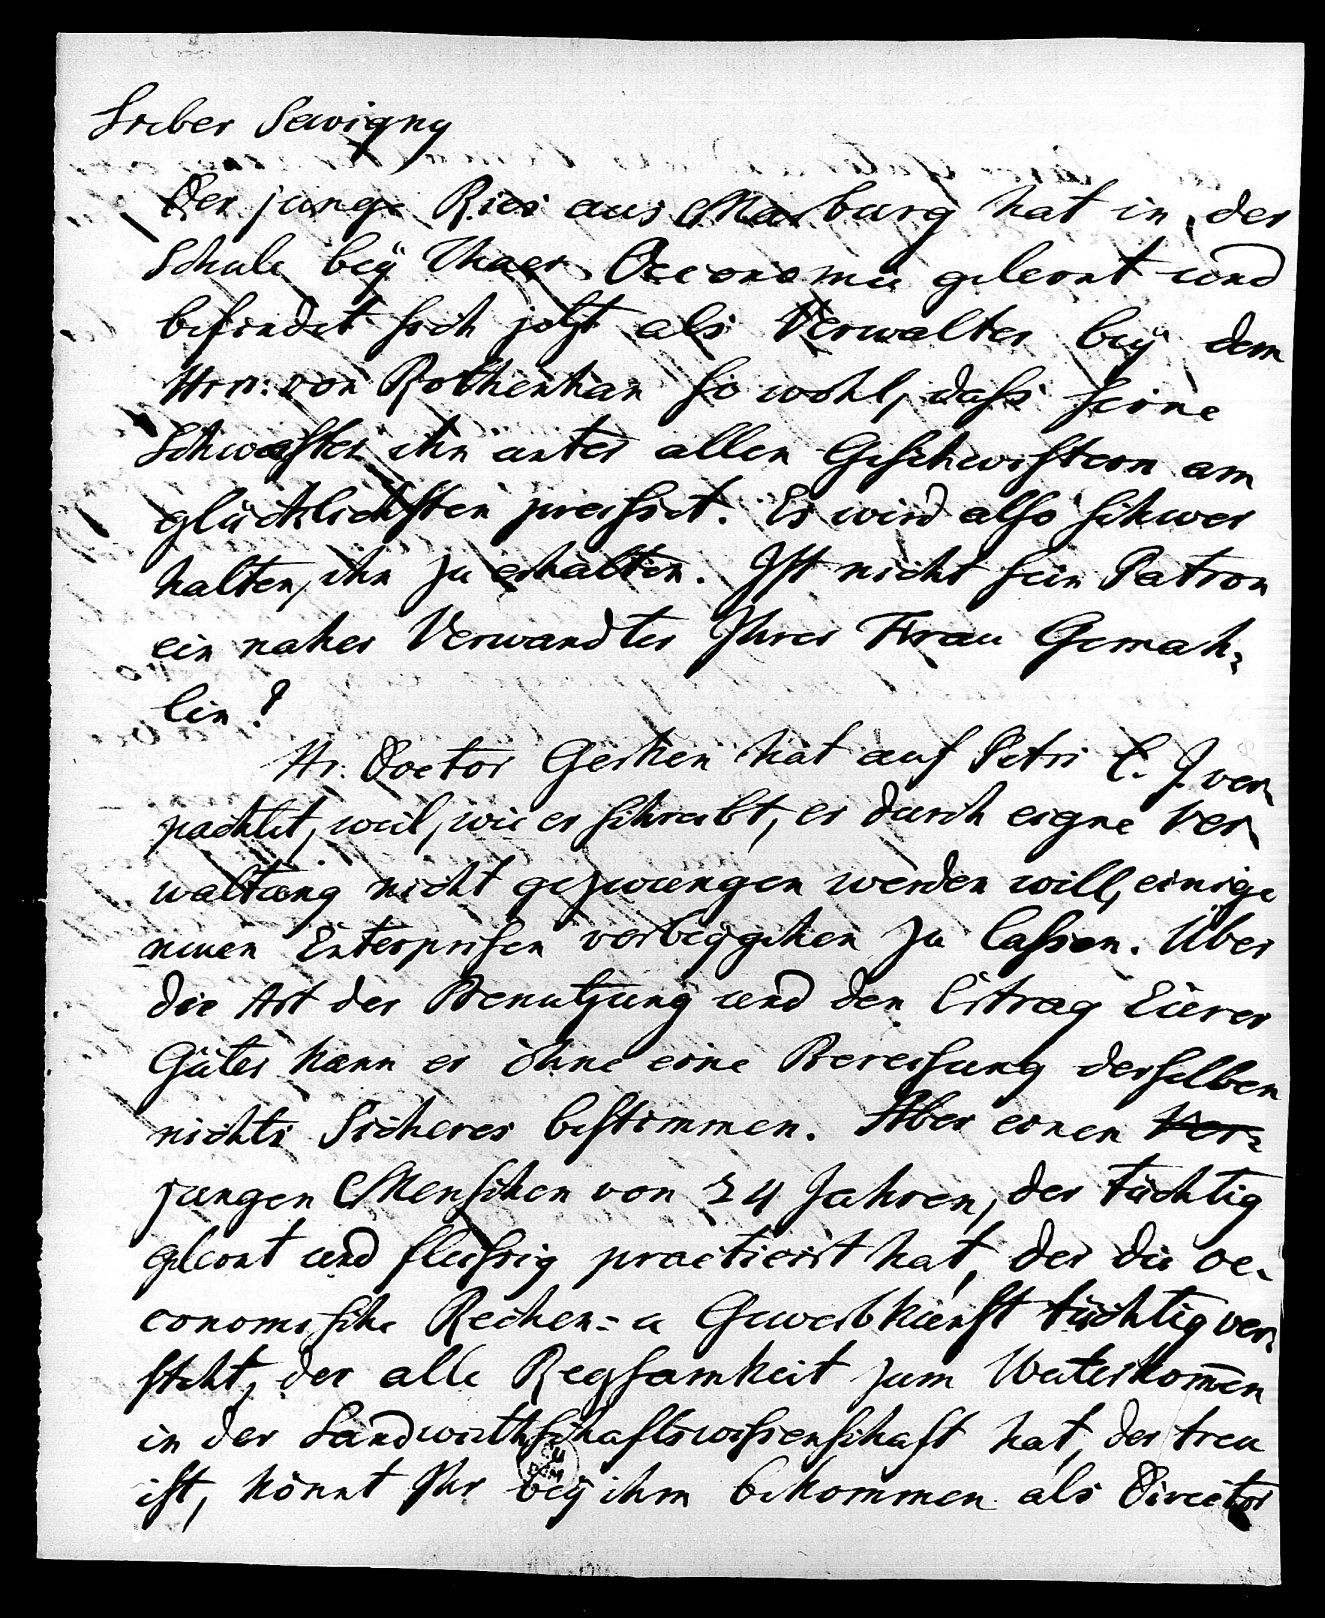 Lieber Savigny
Der junge Ries aus Marburg hat in der
Schule beÿ Thaer Oeconomie gelernt und
befindet sich jetzt als Verwalter beÿ dem
Hrn: von Rothenhan so wohl, dass seine
Schwester ihn unter allen Geschwistern am
glücklichsten preisset. Es wird also schwer
halten, ihn zu erhalten. Ist nicht sein Patron
ein naher Verwandter Ihrer Frau Gemah-
lin?
Hr. Doctor Gerken hat auf Petri C. J. ver-
pachtet, weil, wie er schreibt, er durch eigne Ver-
waltung nicht gezwungen werden will, einige
neuen Enterprisen vorbeÿgehen zu lassen. Über
die Art der Benutzung und den Ertrag Eürer
Güter kann er ohne eine Bereisung derselben
nichts Sicheres bestimmen. Aber einen Ver-
jungen Menschen von 24 Jahren, der tüchtig
gelernt und fleissig practicirt hat, der die oe-
conomische Rechen- u Gewerbkunst tüchtig ver-
steht, der alle Regsamkeit zum Weiterkomen
in der Landwirthschaftswissenschaft hat, der treu
ist, könnt Ihr beÿ ihm bekommen als Director